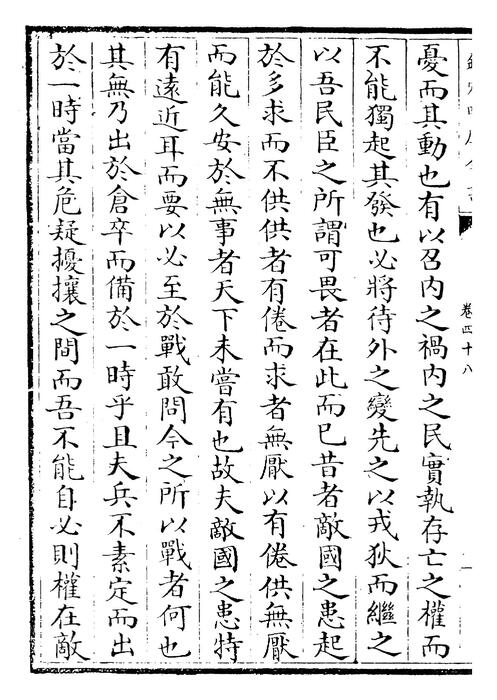 卷四十八
憂而其動也有以召內之禍內之民實執存亡之權而
不能獨起其發也必將待外之變先之以戎狄而繼之
以吾民臣之所謂可畏者在此而已昔者敵國之患起
於多求而不供供者有倦而求者無厭以有倦供無厭
而能久安於無事者天下未嘗有也故夫敵國之患特
有遠近耳而要以必至於戰敢問今之所以戰者何也
其無乃出於倉卒而備於一時乎且夫兵不素定而出
於一時當其危疑擾攘之間而吾不能自必則權在敵